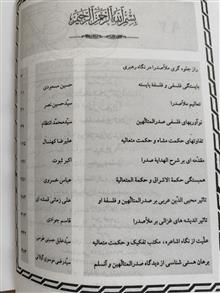 بسم الله الرحمن الرحیم
راز جلوه گری ملاصدرا در نگاه رهبری
بایستگی فلسفی و فلسفه بایسته حسین مسعودی
تعالیم ملاصدرا سیدحسین نصر
نوآوریهای فلسفی صدرالمتألهین سیدمحمد انتظام
تفاوتهای حکمت مشاء و حکمت متعالیه علیرضا کهنسال
مقدمه ای بر شرح الهدایة صدرا اکبر ثبوت
همبستگی حکمة الاشراق و حکمة المتعالیة عباس خسروی
تأثیر محیی الدین عربی بر صدرالمتألهین و فلسفة او علی زمانی قمشه ای
تأثیر اندیشه های غزالی بر ملاصدرا قاسم جوادی
علیت از نگاه اشاعره، مکتب تفکیک و حکمت متعالیه
برهان هستی شناسی از دیدگاه صدرالمتألهین و آنسلم